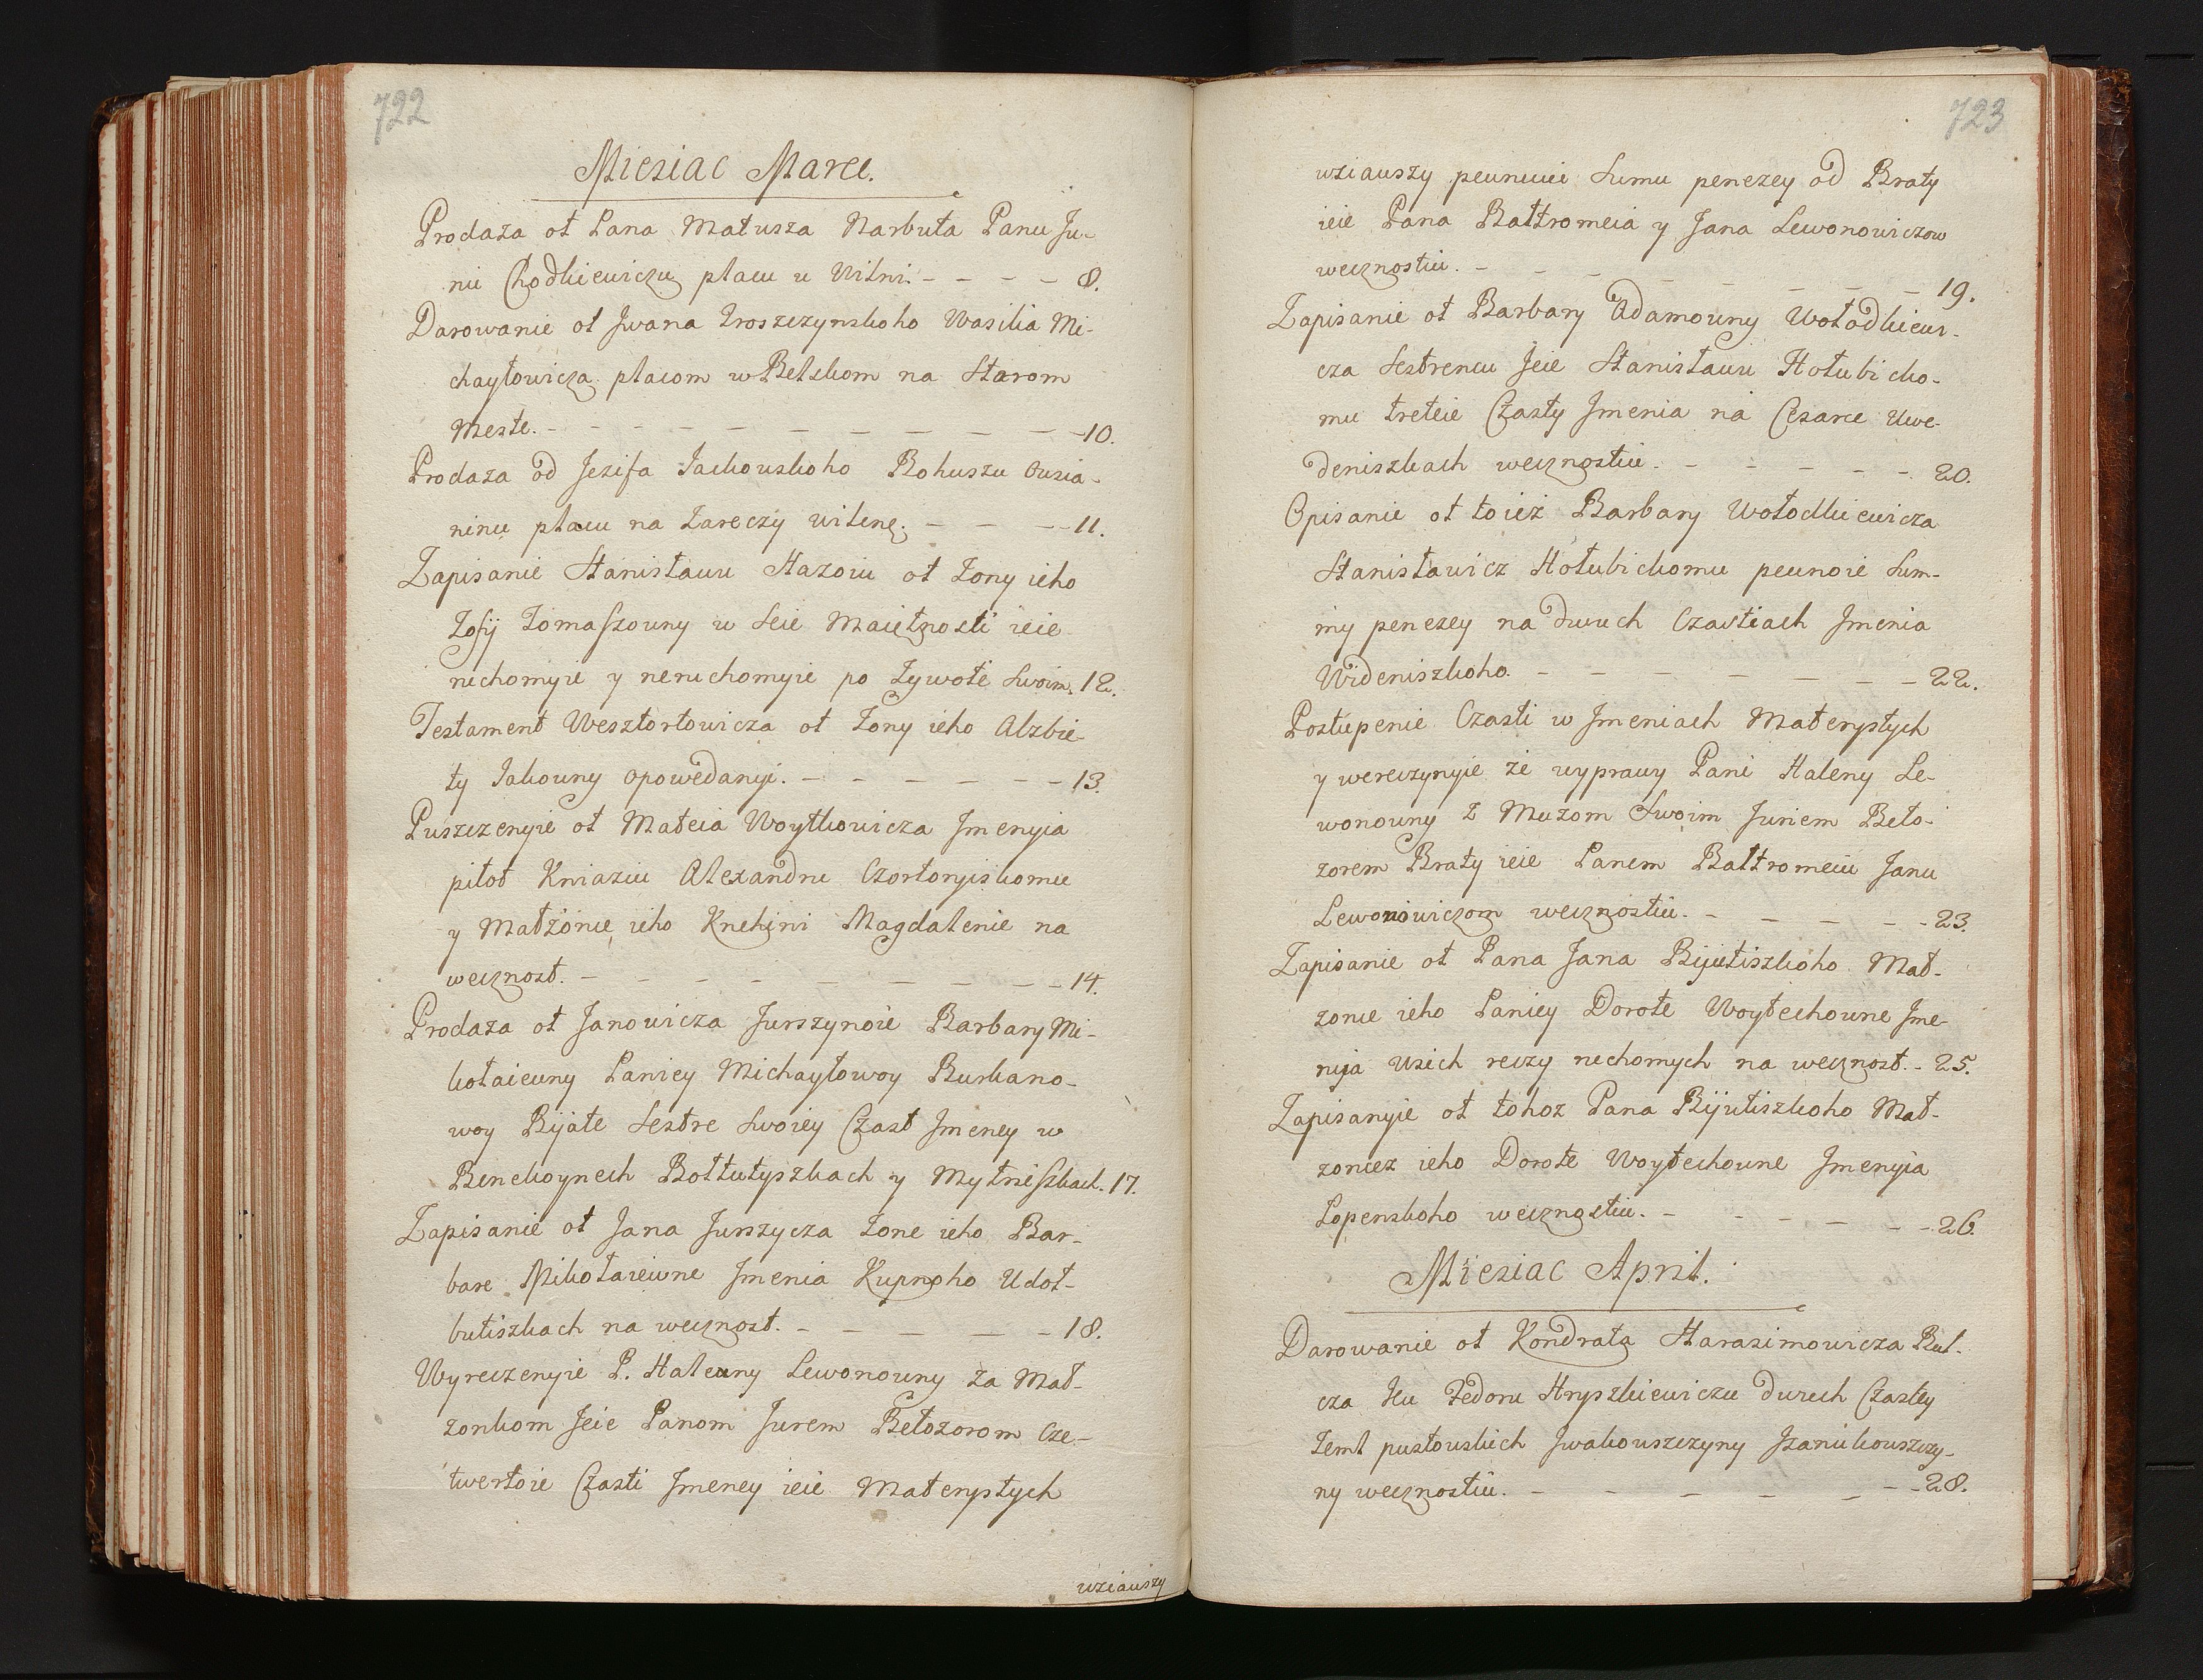 722
Miesiac Marec.
Prodaża ot Pana Matusza Narbuta Panu Ju-
riu Chodkiewiczu placu u Wilni. - - - - 8.
Darowanie ot Jwana Troszczynskoho Wasilia Mi-
chayłowicza placom w Belskom na Starom
Meste. - - - - - - - - - - 10.
Prodaża od Jezifa Jackouskoho Bohuszu Ousia-
ninu placu na Zareczy wilenę. - - - - 11.
Zapisanie Stanisławu Hazoiu ot Żony ieho
Zofij Tomaszouny w Seie Maiętnosti ieie
ruchomyie y neruchomyie po Żywotě Swoim. 12.
Testament Wesztortowicza ot Żony ieho Alzbie-
ty Jakouny opowedanyi. - - - - - - 13.
Puszczenyie ot Mateia Woytkowicza Jmenyia
piłoł Kniaziu Alexandru Czortoryiskomu
y Małżonce ieho Knehini Magdalenie na
wecznost. - - - - - - - - - 14.
Prodaża ot Janowicza Jurszynoie Barbary Mi-
kołaieuny Paniey Michayłowoy Burkano-
woy Bijate Sestre Swoiey Czast Jmeney w
Benekoynech Bołtutyszkach y Mytniszkach. 17.
Zapisanie ot Jana Jurszycza Żone ieho Bar-
bare Mikołaiewne Jmenia Kupnoho Udoł-
butiszkach na wecznost. - - - - - 18.
Wyreczenyie P. Haleuny Lewonouny za Mał-
żonkom Jeie Panom Jurem Bełozorom cze-
twertoie Czasti Jmeney ieie Materystych
uziauszy
723
wziauszy peunuiu Sumu penezey od Braty
ieie Pana Bałtromeia y Jana Lewonowiczow
wecznostiu. - - - - - - - 19.
Zapisanie ot Barbary Adamouny Wołodkiewi-
cza Sestrencu Jeie Stanisławu Hołubicko-
mu treteie Czasty Jmenia na Cesarce Uwe-
deniszkach wecznostiu. - - - - - 20.
Opisanie ot toież Barbary Wołodkiewicza
Stanisławicz Hołubickomu peunoie Sum-
my penezey na dwuch Czastiach Jmenia
Wideniszkoho. - - - - - - - 22.
Postupenie Czasti w Jmeniach Materystych
y wereczynyie że wyprawy Pani Haleny Le-
wonouny z Mużom Swoim Juriem Beło-
zorem Braty ieie Panem Bałtromeiu Janu
Lewonowiczom wecznostiu. - - - - - 23.
Zapisanie ot Pana Jana Bijutiszkoho Mał-
żonce ieho Paniey Dorote Woytechoune Jme-
nija Usich reczy ruchomych na wecznost. - 25.
Zapisanyie ot tohoż Pana Bijutiszkoho Mał-
żoncez ieho Dorote Woytechoune Jmenyia
Łopenskoho wecznostiu. - - - - - 26.
Miesiac April.
Darowanie ot Kondrata Harasimowicza Bul-
cza Ku Fedoru Hryszkiewiczu dwuch Czastey
Zeml pustouskich Jwakouszczyny Jzanukouszczy-
ny wecznostiu. - - - - - - - 28.